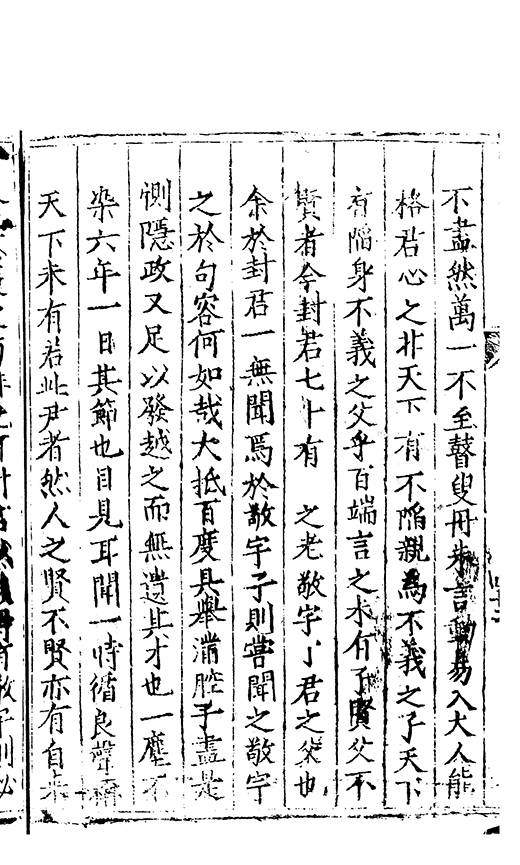 不盡然萬一不至瞽叟丹朱言動易入大人能
格君心之非天下有不陷親為不義之子天下
有陷身不義之父乎百端言之未有子賢父不
賢者今封君七十有 之老敬宇丁君之父也
余於封君一無聞焉於敬宇子則嘗聞之敬宇
之於句容何如哉大抵百度具舉滿腔子盡是
惻隱政又足以發越之而無遺其才也一塵不
染六年一日其節也目見耳聞一時循良聲稱
天下未有若此尹者然人之賢不賢亦有自來